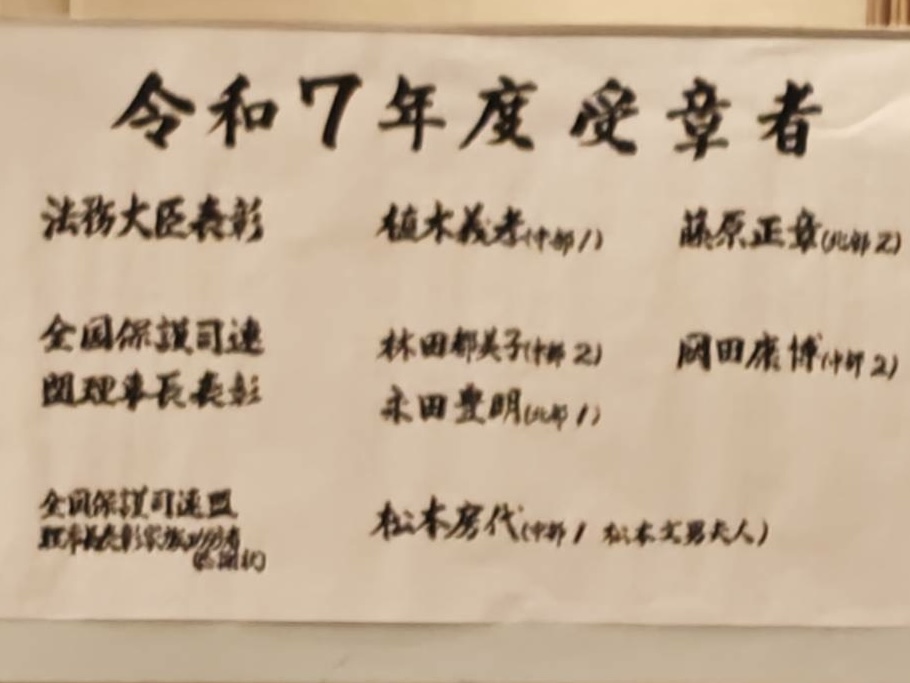 令和7年度 受章者
法務大臣表彰 植木義孝(中部1) 藤原正章(北部2)
全国保護司連 林田都美子(中部2) 岡田康博(中部2)
盟理事長表彰 永田豊明(北部1)
全国保護司連盟 松本房代(中部1 松本文男夫人)
理事長表彰家族功労者